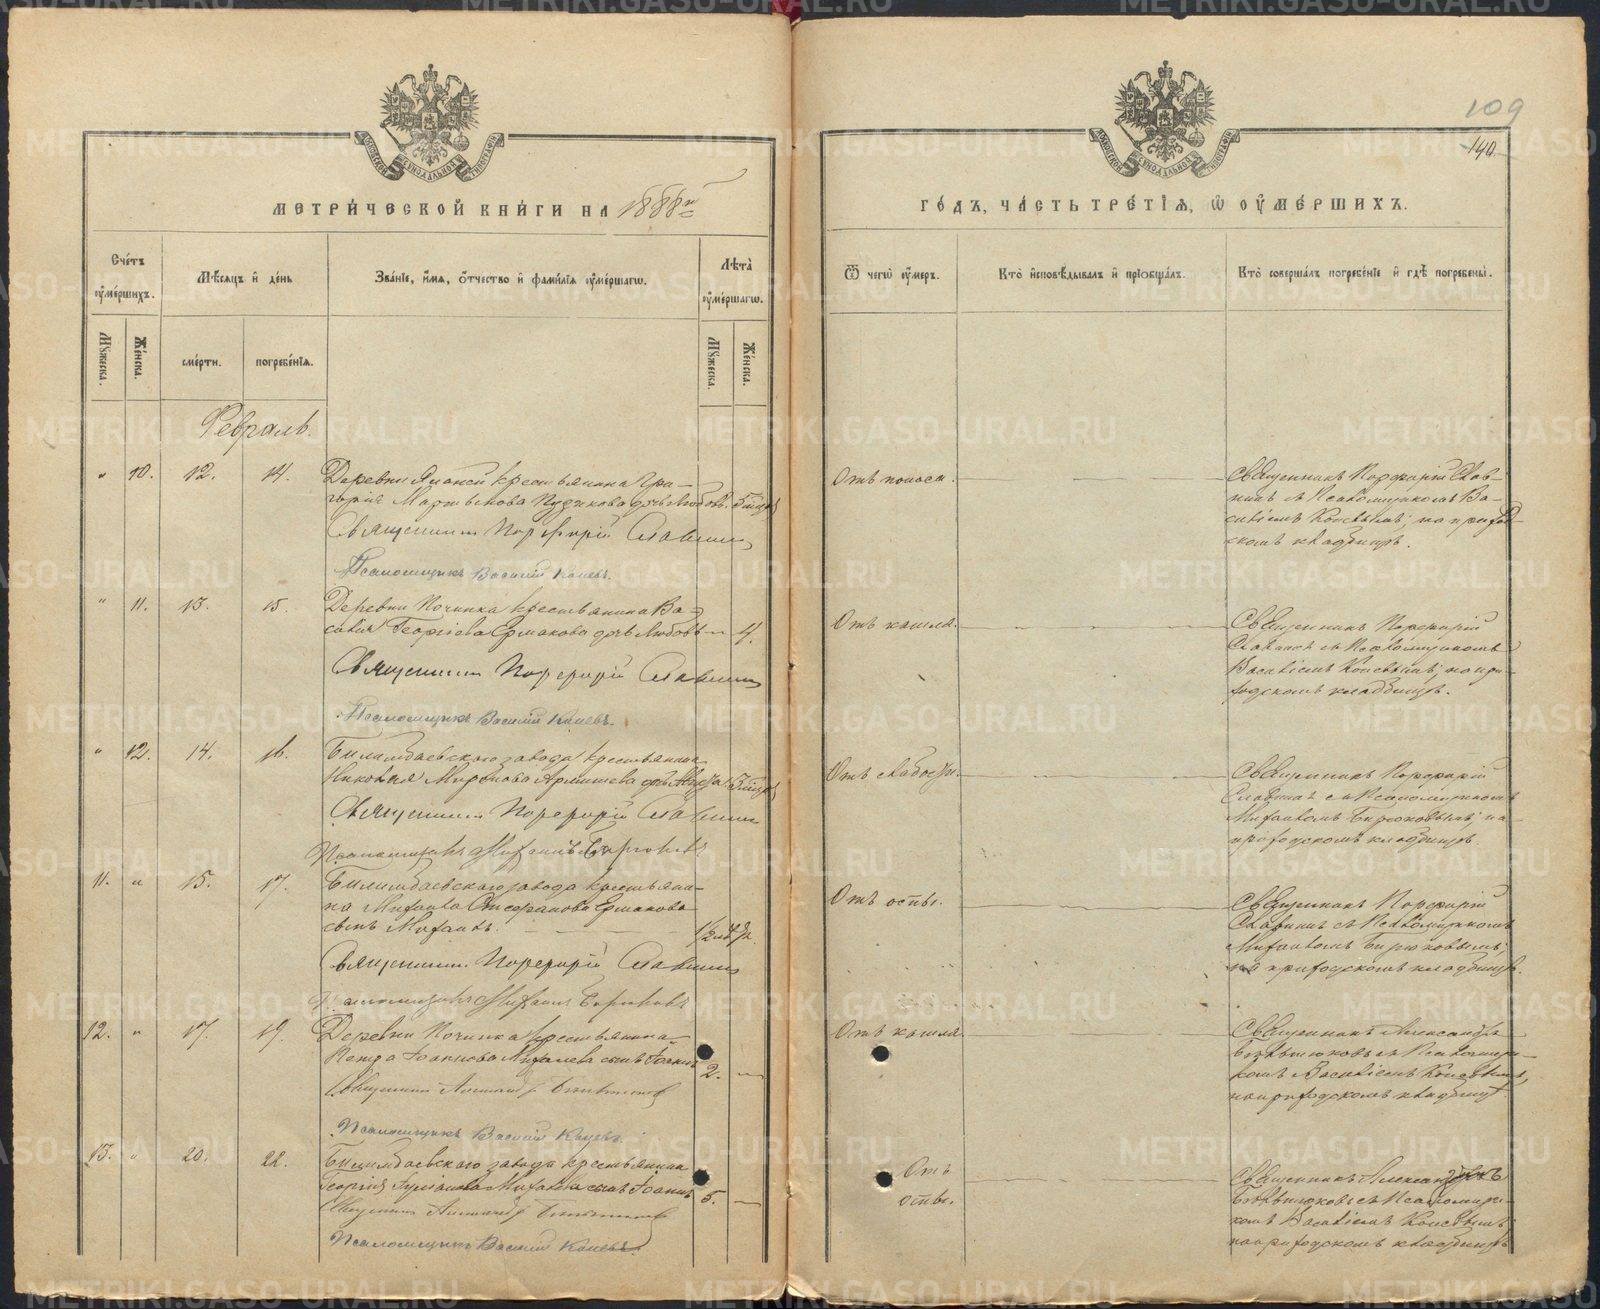 109
140
МЕТРИ́ЧЕСКОЙ КНИ́ГИ НА 1888й
ГО́ДЪ, ЧА́СТЬ ТРЕ́ТІѦ, Ѡ҆ ОУ҆МЕ́РШИХЪ.
Сче́тъ оу҆ме́ршихъ.
Мѣ́сяцъ и҆ де́нь
Зва́ніе, и҆́мѧ, ѻ҆́тчество и҆ фами́лія оу҆ме́ршагѡ.
Лѣта̀ оу҆ме́ршагѡ.
Му́жеска.
Же́нска.
сме́рти.
погребе́нія.
Му́жеска.
Же́нска.
Ѿ чегѡ̀ оу҆́меръ.
Кто̀ и҆сповѣ́дывалъ и҆ прїѻбща́лъ.
Кто̀ соверша́лъ погребе́ніе и҆ гдѣ̀ погребены̀.
Февраль.
" 10. 12. 14.
Деревни крестьянина Гри-
горія Мартынова дочь Любовь.
Священникъ Порфирій Славнинъ
Псаломщикъ Василій Коневъ.
Отъ поноса.
Священникъ Порфирій Слав-
нинъ съ Псаломщикомъ Ва-
силіемъ Коневымъ; на приход-
скомъ кладбищѣ.
" 11. 13. 15.
Деревни Починка крестьянина Ва-
силія Георгіева Ермакова дочь Любовь 4.
Священникъ Порфирій Славнинъ
Псаломщикъ Василій Коневъ.
Отъ кашля.
Священникъ Порфирій
Славнинъ съ Псаломщикомъ
Василіемъ Коневымъ; на при-
ходскомъ кладбищѣ.
" 12. 14. 16.
Билимбаевскаго завода крестьянина
Николая Миронова
Священникъ Порфирій Славнинъ
Псаломщикъ Михаилъ Бирюковъ
Отъ слабости.
Священникъ Порфирій
Славнинъ съ Псаломщикомъ
Михаиломъ Бирюковымъ; на
приходскомъ кладбищѣ
11. " 15. 17.
Билимбаевскаго завода крестьяни-
на Михаила Стефанова Ермакова
сынъ Михаилъ.
Священникъ Порфирій Славнинъ
Псаломщикъ Михаилъ Бирюковъ
Отъ оспы.
Священникъ Порфирій
Славнинъ съ Псаломщикомъ
Михаиломъ Бирюковымъ;
на приходскомъ кладбищѣ.
12. " 17. 19.
Деревни Починка крестьянина
Петра Іоаннова Михалева сынъ Іоаннъ 2.
Священникъ Александръ
Псаломщикъ Василій Коневъ.
Отъ кашля
Священникъ Александръ
съ Псаломщи-
комъ Василіемъ Коневымъ,
на приходскомъ кладбищѣ.
13. " 20. 22.
Билимбаевскаго завода крестьянина
Георгія сынъ Іоаннъ 5.
Священникъ Александръ
Псаломщикъ Василій Коневъ.
Отъ
оспы.
Священникъ Александръ
съ Псаломщи-
комъ Василіемъ Коневымъ
на приходскомъ кладбищѣ
METRIKI.GASO-URAL.RU